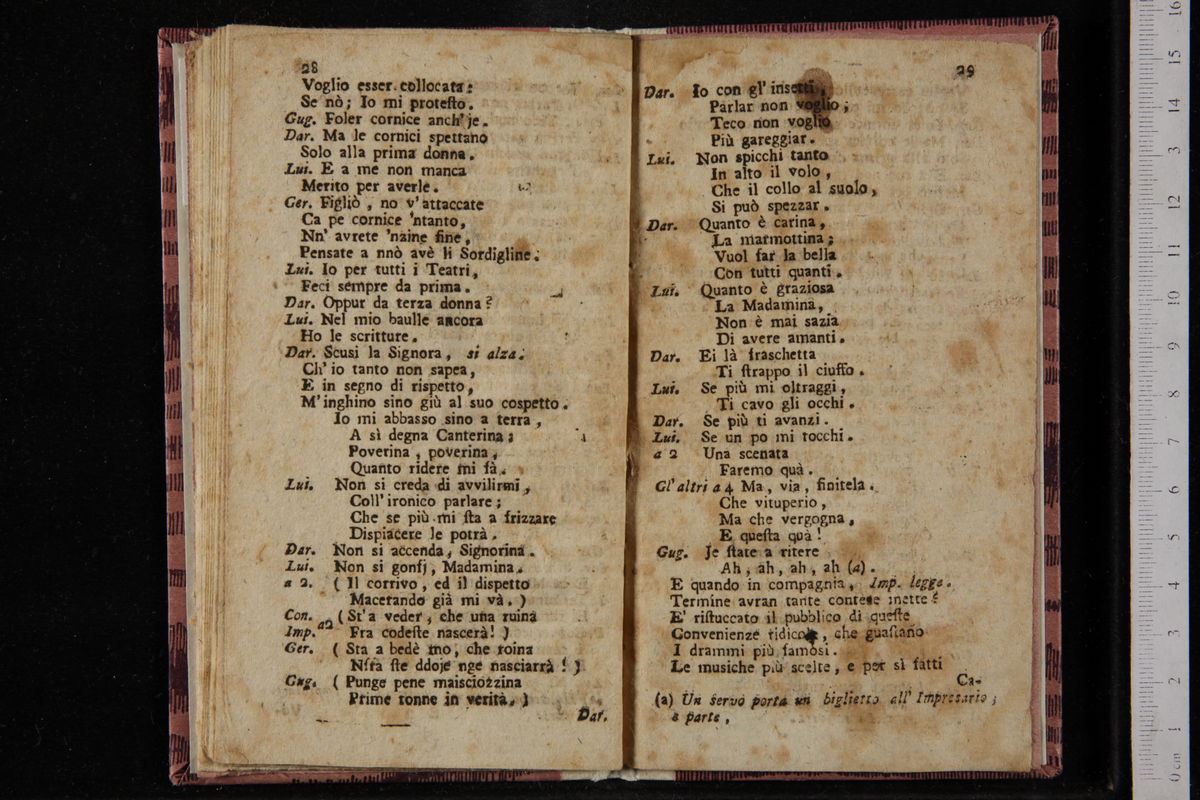 28
Voglio esser collocata:
Se nò; Io mi protesto.
Gug. Foler cornice anch' je.
Dar. Ma le cornici spettano
Solo alla prima donna.
Lui. E a me non manca
Merito per averle.
Ger. Figliò, no v' attaccate
Ca pe cornice 'ntanto,
Nn' avrete 'naine fine,
Pensate a nnò avè li Sordigline.
Lui. Io per tutti i Teatri,
Feci sempre da prima.
Dar. Oppur da terza donna?
Lui. Nel mio baulle ancora
Ho le scritture.
Dar. Scusi la Signora, si alza.
Ch' io tanto non sapea,
E in segno di rispetto,
M' inghino sino giù al suo cospetto.
Io mi abbasso sino a terra,
A sì degna Canterina:
Poverina, poverina,
Quanto ridere mi fà.
Lui. Non si creda di avvilirmi,
Coll' ironico parlare;
Che se più mi sta a frizzare
Dispiacere le potrà.
Dar. Non si accenda, Signorina.
Lui. Non si gonfj, Madamina.
a 2. ( Il corrivo, ed il dispetto
Macerando già mi và. )
Con. a2 ( St' a veder, che una ruina
Imp. Fra codeste nascerà! )
Ger. ( Sta a bedè mo, che roina
Nfra ste ddoje nge nasciarrà! )
Gug. ( Punge pene maisciozzina
Prime tonne in verità. )
Dar.
29
Dar. Io con gl' insetti,
Parlar non voglio;
Teco non voglio
Più gareggiar.
Lui. Non spicchi tanto
In alto il volo,
Che il collo al suolo,
Si può spezzar.
Dar. Quanto è carina,
La marmottina;
Vuol far la bella
Con tutti quanti.
Lui. Quanto è graziosa
La Madamina,
Non è mai sazia
Di avere amanti.
Dar. Ei là fraschetta
Ti strappo il ciuffo.
Lui. Se più mi oltraggi,
Ti cavo gli occhi.
Dar. Se più ti avanzi.
Lui. Se un po mi tocchi.
a 2 Una scenata
Faremo quà.
Gl' altri a 4 Ma, via, finitela.
Che vituperio,
Ma che vergogna,
E questa quà!
Gug. Je state a ritere
Ah, ah, ah, ah (a).
E quando in compagnia, Imp. legge.
Termine avran tante contese inette?
E' ristuccato il pubblico di queste
Convenienze ridicole, che guastano
I drammi più famosi.
Le musiche più scelte, e per sì fatti
Ca-
(a) Un servo porta un biglietto all' Impresario;
e parte,